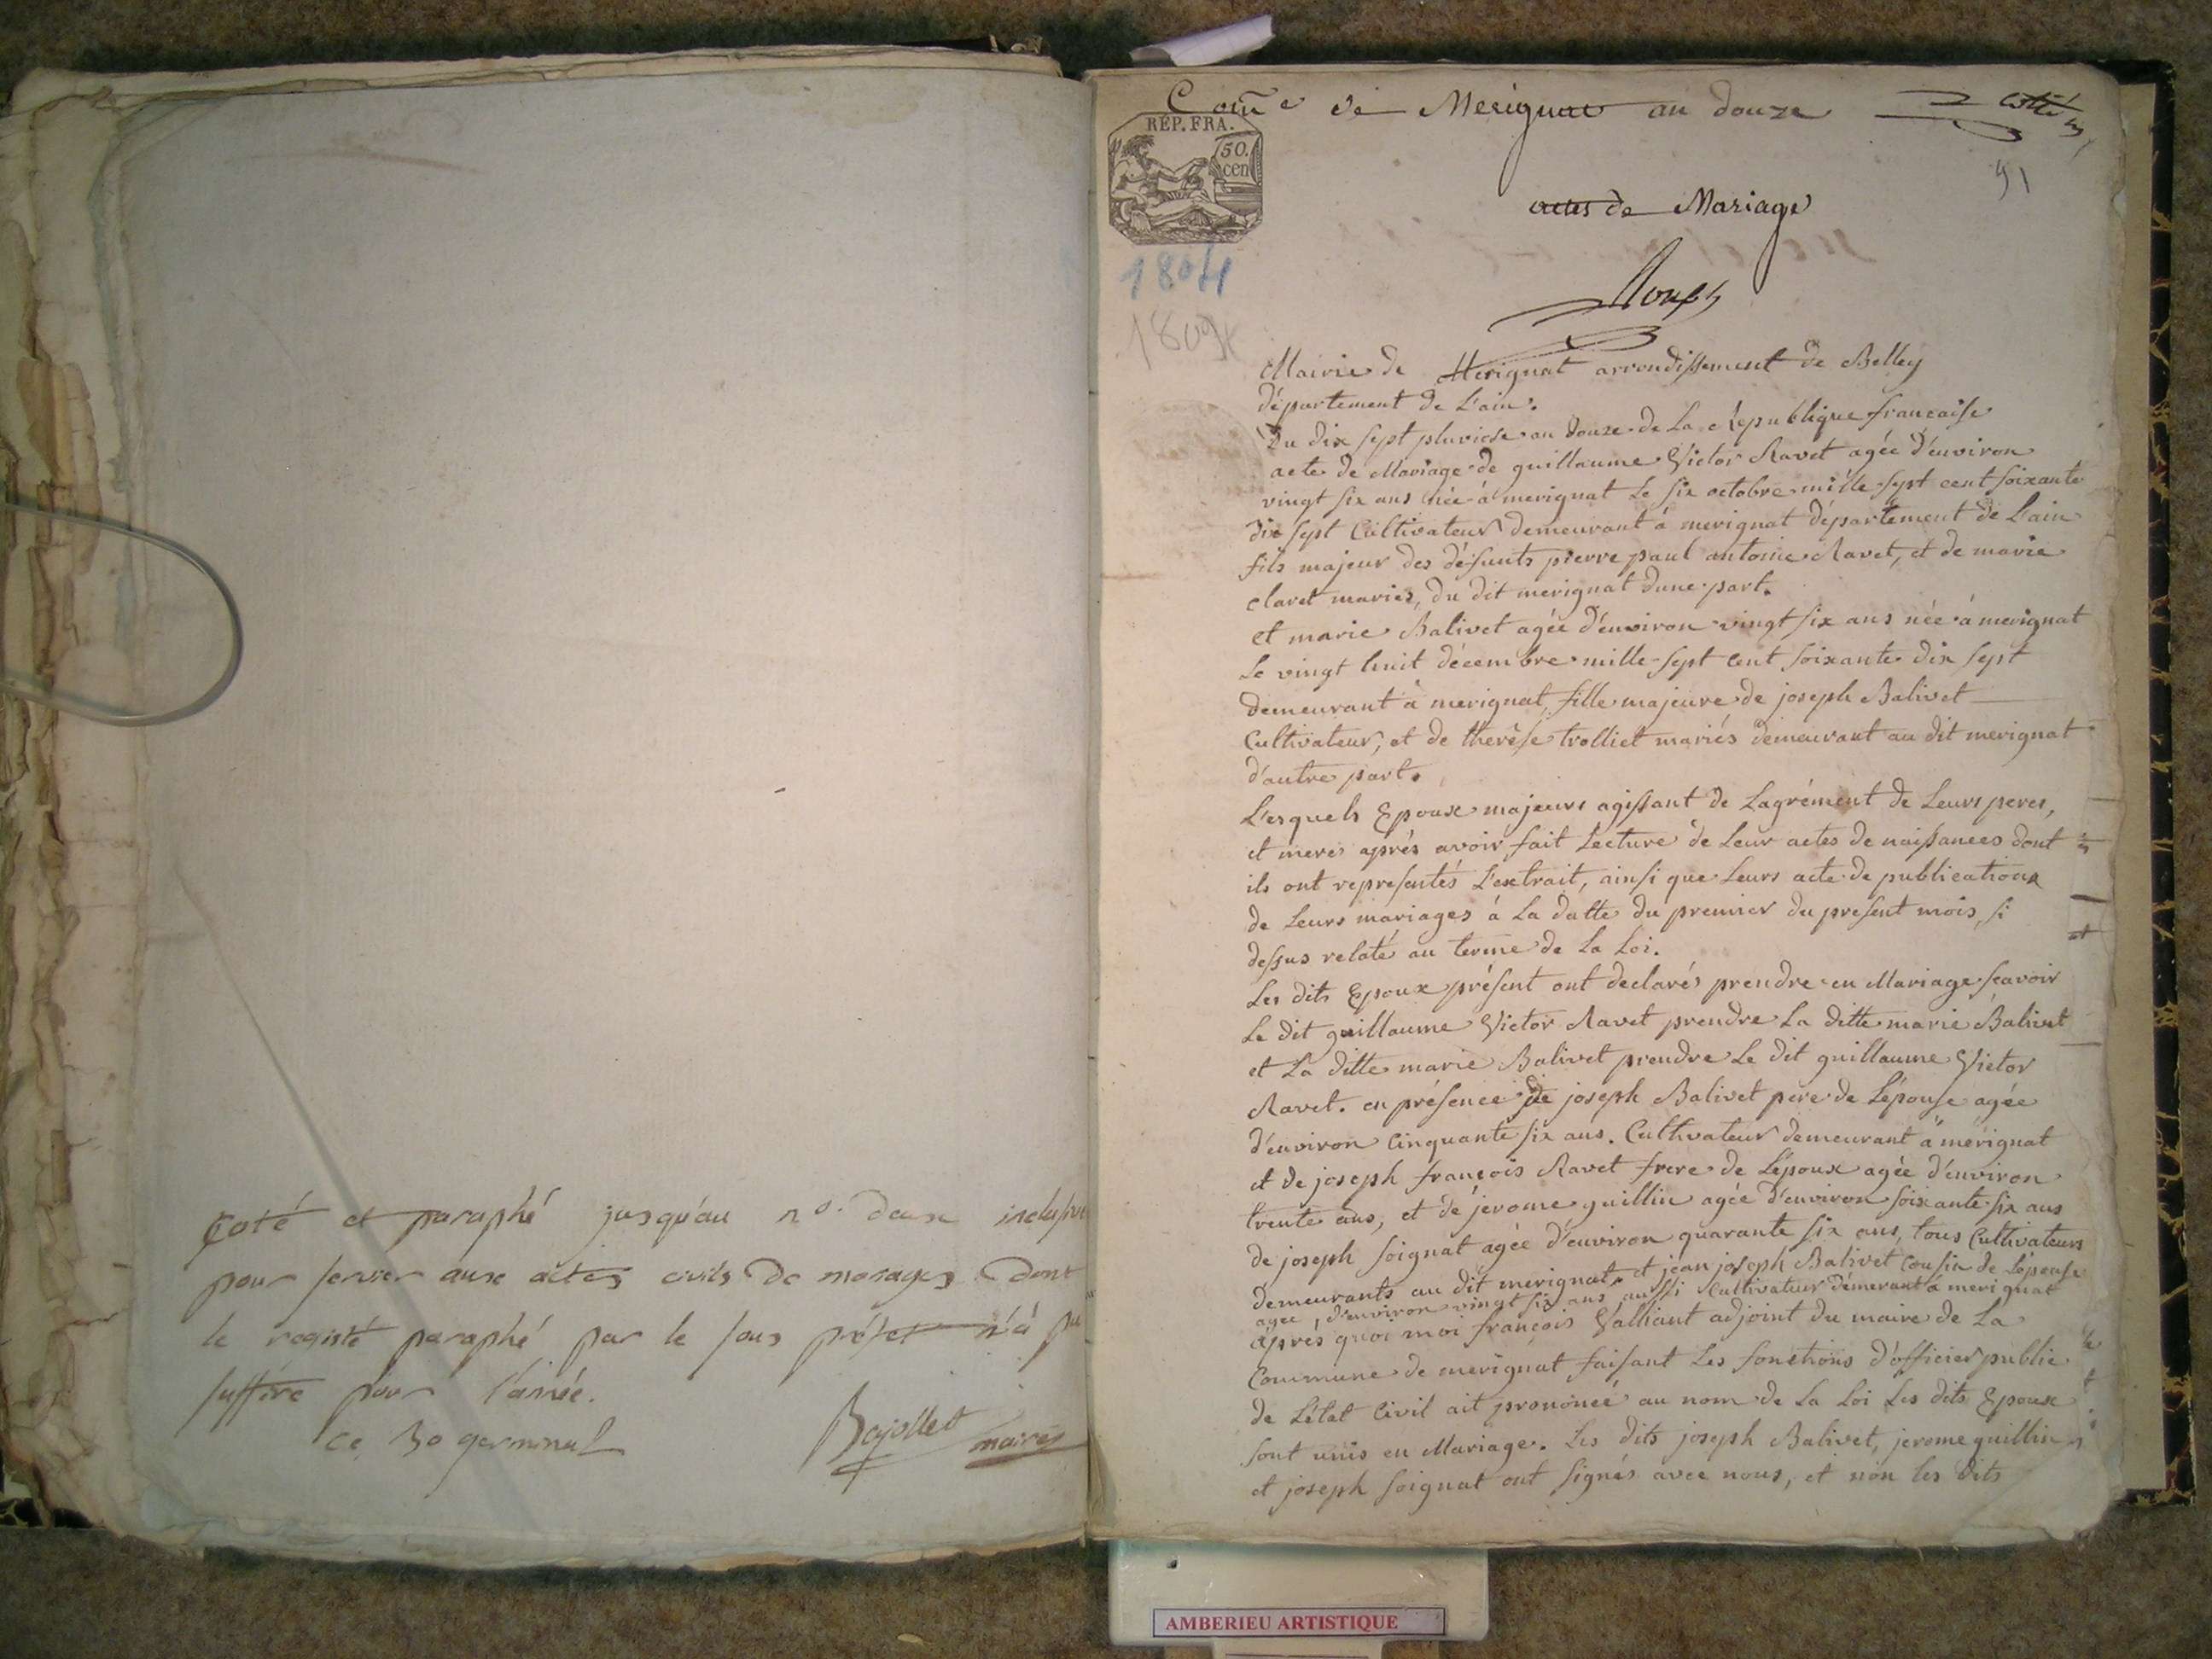 Coté et paraphé jusqu'au n.o deux inclusive
pour servir aux actes civils de mariages dont
le registe paraphé par le sous préfet n'a pu
suffire pour l'année.
Ce 30 germinal
maire
Com.e de Merignat an douze
RÉP. FRA.
50.
cen
91
actes de Mariage
1804
1804
Mairie de Merignat arrondissement de Belley
département de L'ain.
Du dix sept pluviose an douze de La République francaise
acte de Mariage de guillaume Victor Ravet agée d'environ
vingt six ans née á merignat Le six octobre mille sept cent soixante
dix sept Cultivateur demeurant á merignat département de L'ain
fils majeur des défunts pierre paul antoine Ravet, et de marie
claret mariés, du dit merignat dune part.
et marie Balivet agée d'environ vingt six ans née á merignat
Le vingt huit décembre mille sept cent soixante dix sept
demeurant á merignat, fille majeure de joseph Balivet
Cultivateur, et de therèse trolliet mariés demeurant au dit merignat
d'autre part.
L'esquels Epoux majeurs agissant de Lagrément de Leurs peres,
et meres aprés avoir fait Lecture de Leur actes de naissances dont
ils ont representés L'extrait, ainsi que Leurs acte de publications
de Leurs mariages á La datte du premier du present mois, si
dessus relaté au terme de La Loi.
Les dits Epoux présent ont declarés prendre en Mariage scavoir
Le dit guillaume Victor Ravet prendre La ditte marie Balivet
et La ditte marie Balivet prendre Le dit guillaume Victor
Ravet. en présence de joseph Balivet pere de L'épouse agée
d'environ Cinquante six ans. Cultivateur demeurant á mérignat
et de joseph françois Ravet frere de L'époux agée d'environ
trente ans, et de jerome guillin agée d'environ soixante six ans
de joseph soignat agée d'environ quarante six ans, tous Cultivateurs
demeurants au dit merignat. et jean joseph Balivet Cousin de L'épouse
agée d'environ vingt six ans aussi Cultivateur démerant á merignat
aprés quoi moi françois Valliant adjoint du maire de La
Commune de merignat faisant Les fonctions d'officier public
de L'état Civil ait prononcé au nom de La Loi Les dits Epoux
sont unis en Mariage. Les dits joseph Balivet, jerome guillin
et joseph soignat ont signés avec nous, et non les dits
AMBERIEU ARTISTIQUE